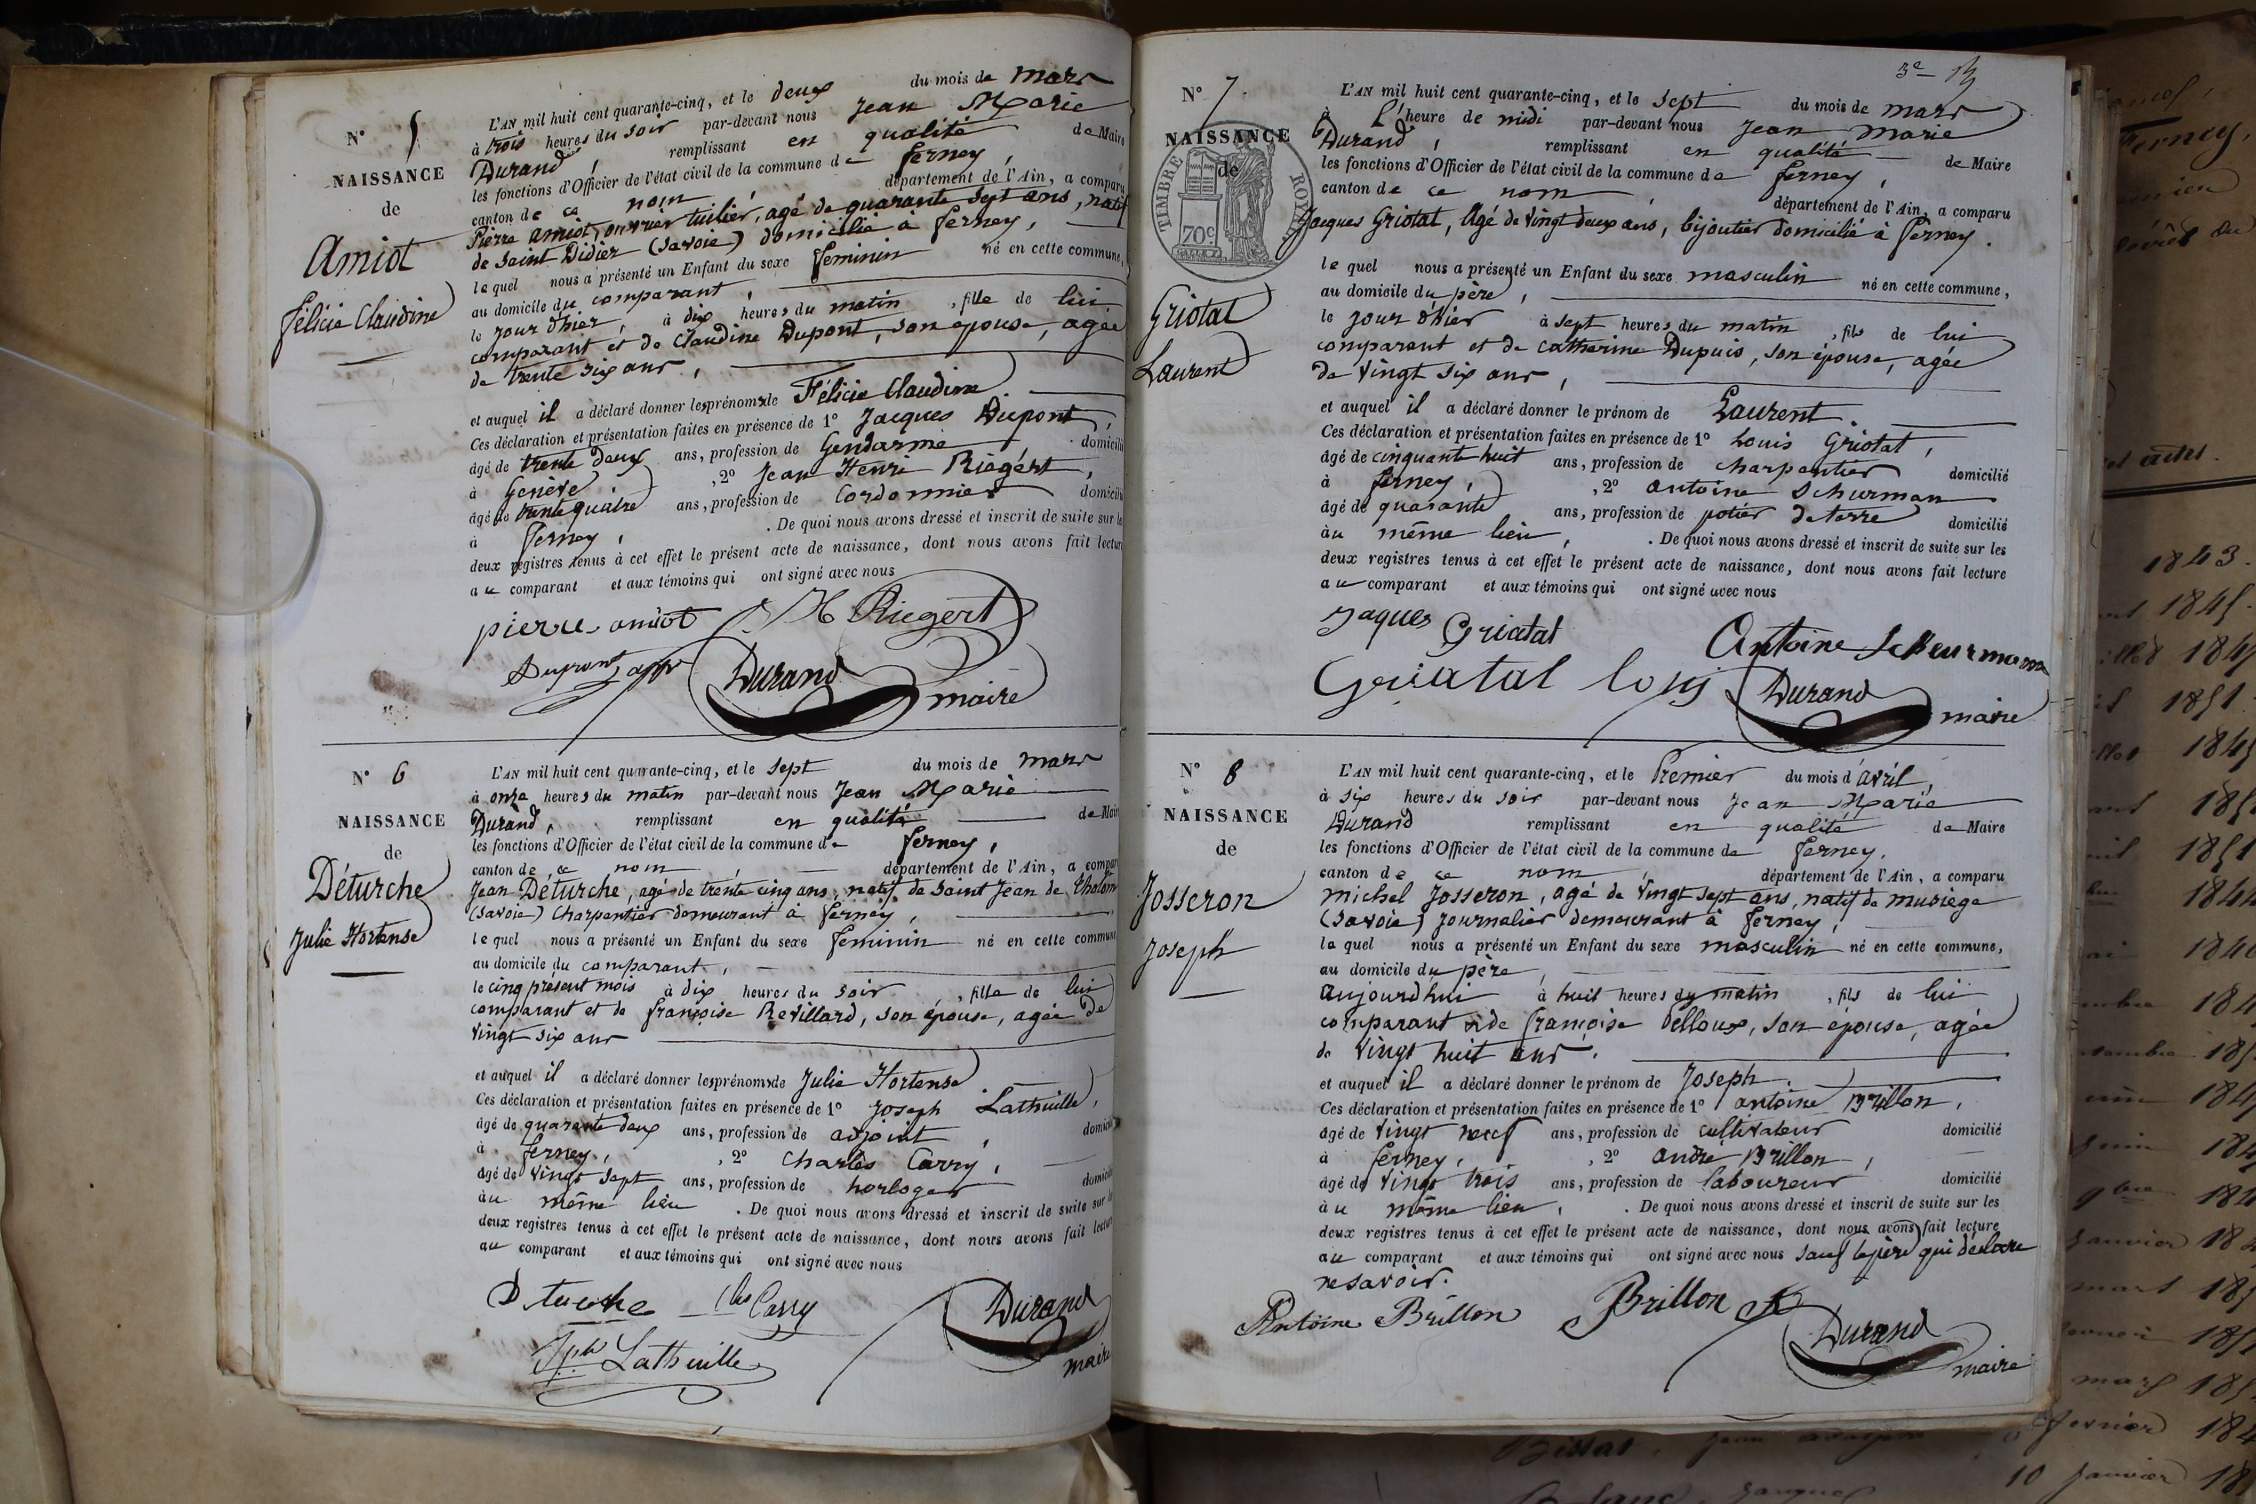 N° 5
NAISSANCE
de
Amiot
Félicie Claudine
L'AN mil huit cent quarante-cinq, et le deux du mois de mars
à trois heures du soir par-devant nous Jean Marie
Durand, remplissant en qualité de Maire
les fonctions d'Officier de l'état civil de la commune de ferney,
canton de ce nom département de l'Ain, a comparu
Pierre amiot, ouvrier tuilier, agé de quarante sept ans, natif
de Saint Didier (Savoie) domicilié à ferney,
lequel nous a présenté un Enfant du sexe feminin né en cette commune,
au domicile du comparant,
le jour d'hier, à dix heures du matin, fille de lui
comparant et de Claudine Dupont, son épouse, agée
de trente six ans,
et auquel il a déclaré donner les prénoms de Félicie Claudine
Ces déclaration et présentation faites en présence de 1° Jacques Dupont,
âgé de trente deux ans, profession de Gendarme domicilié
à Genève, 2° Jean Henri Riegert,
âgé de trente quatre ans, profession de Cordonnier domicilié
à ferney, . De quoi nous avons dressé et inscrit de suite sur les
deux registres tenus à cet effet le présent acte de naissance, dont nous avons fait lecture
au comparant et aux témoins qui ont signé avec nous
pierre amiot J H Riegert
Dupont Durand maire
N° 6
NAISSANCE
de
Déturche
Julie Hortense
L'AN mil huit cent quarante-cinq, et le sept du mois de mars
à onze heures du matin par-devant nous Jean Marie
Durand, remplissant en qualité de Maire
les fonctions d'Officier de l'état civil de la commune de ferney,
canton de ce nom département de l'Ain, a comparu
Jean Déturche, agé de trente cinq ans, natif de Saint Jean de Tholôme
(Savoie) Charpentier demeurant à ferney,
lequel nous a présenté un Enfant du sexe feminin né en cette commune
au domicile du comparant,
le cinq présent mois à dix heures du soir, fille de lui
comparant et de françoise Revillard, son épouse, agée de
vingt six ans
et auquel il a déclaré donner les prénoms de Julie Hortense
Ces déclaration et présentation faites en présence de 1° Joseph Lathuille,
âgé de quarante deux ans, profession de adjoint, domicilié
à ferney, 2° Charles Carry,
âgé de vingt sept ans, profession de horloger domicilié
au même lieu . De quoi nous avons dressé et inscrit de suite sur les
deux registres tenus à cet effet le présent acte de naissance, dont nous avons fait lecture
au comparant et aux témoins qui ont signé avec nous
Dtuche Chs Carry Durand
Jph Lathuille maire
3e
N° 7
NAISSANCE
de
TIMBRE ROYAL
70c
Griotat
Laurent
L'AN mil huit cent quarante-cinq, et le sept du mois de mars
à l'heure de midi par-devant nous Jean Marie
Durand, remplissant en qualité de Maire
les fonctions d'Officier de l'état civil de la commune de ferney,
canton de ce nom, département de l'Ain, a comparu
Jacques Griotat, Agé de vingt deux ans, bijoutier domicilié à ferney.
lequel nous a présenté un Enfant du sexe masculin né en cette commune,
au domicile du père,
le jour d'hier à sept heures du matin, fils de lui
comparant et de Catherine Dupuis, son épouse, agée
de vingt six ans,
et auquel il a déclaré donner le prénom de Laurent.
Ces déclaration et présentation faites en présence de 1° Louis Griotat,
âgé de cinquante huit ans, profession de charpentier domicilié
à ferney, 2° antoine Schurman
âgé de quarante ans, profession de potier de terre domicilié
au même lieu, . De quoi nous avons dressé et inscrit de suite sur les
deux registres tenus à cet effet le présent acte de naissance, dont nous avons fait lecture
au comparant et aux témoins qui ont signé avec nous
Jaques Griatat Antoine Scheurmann
Griatal louis Durand maire
N° 8
NAISSANCE
de
Josseron
Joseph
L'AN mil huit cent quarante-cinq, et le Premier du mois d'avril,
à six heures du soir par-devant nous Jean Marie
Durand remplissant en qualité de Maire
les fonctions d'Officier de l'état civil de la commune de ferney.
canton de ce nom, département de l'Ain, a comparu
michel Josseron, agé de vingt sept ans, natif de musiège
(Savoie) journalier demeurant à ferney,
lequel nous a présenté un Enfant du sexe masculin né en cette commune,
au domicile du père,
aujourd'hui à huit heures du matin, fils de lui
comparant & de françoise Delloux, son épouse, agée
de vingt huit ans.
et auquel il a déclaré donner le prénom de Joseph.
Ces déclaration et présentation faites en présence de 1° antoine Brillon,
âgé de vingt neuf ans, profession de cultivateur domicilié
à ferney, 2° andré Brillon,
âgé de vingt trois ans, profession de laboureur domicilié
au même lieu, . De quoi nous avons dressé et inscrit de suite sur les
deux registres tenus à cet effet le présent acte de naissance, dont nous avons fait lecture
au comparant et aux témoins qui ont signé avec nous sauf le père qui déclare
ne savoir.
Antoine Brillon Brillon Durand
maire
Ferney,
1843.
1845.
184
1851
1845
185
1851
1844
1846
184
185
184
184
184
janvier 18
mars 185
185
mars 185
fevrier 184
10 janvier 18